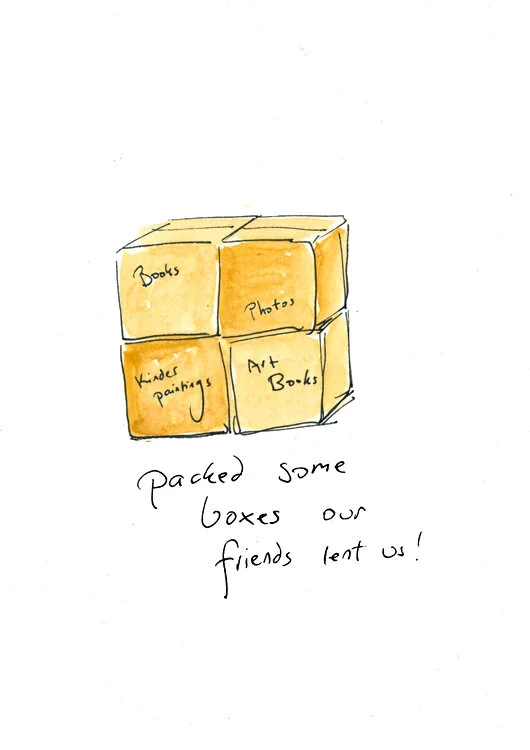 Books
Photos
Kinder
paintings
Art
Books
packed some
boxes our
friends lent us!